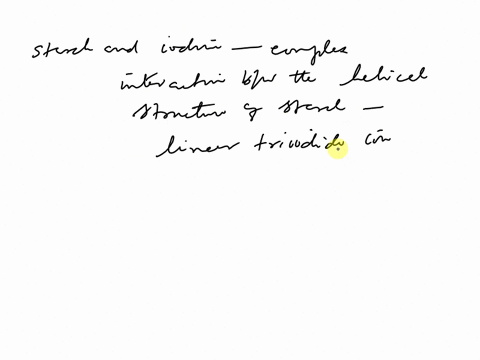 starch and iodine — complex
interaction b/w the helical
structure of starch —
linear triiodide ion